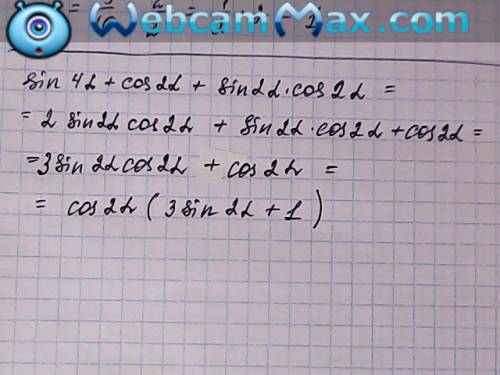 WebcamMax.com
sin 4α + cos 2α + sin 2α · cos 2α =
= 2 sin 2α cos 2α + sin 2α · cos 2α + cos 2α =
= 3 sin 2α cos 2α + cos 2α =
= cos 2α ( 3 sin 2α + 1 )